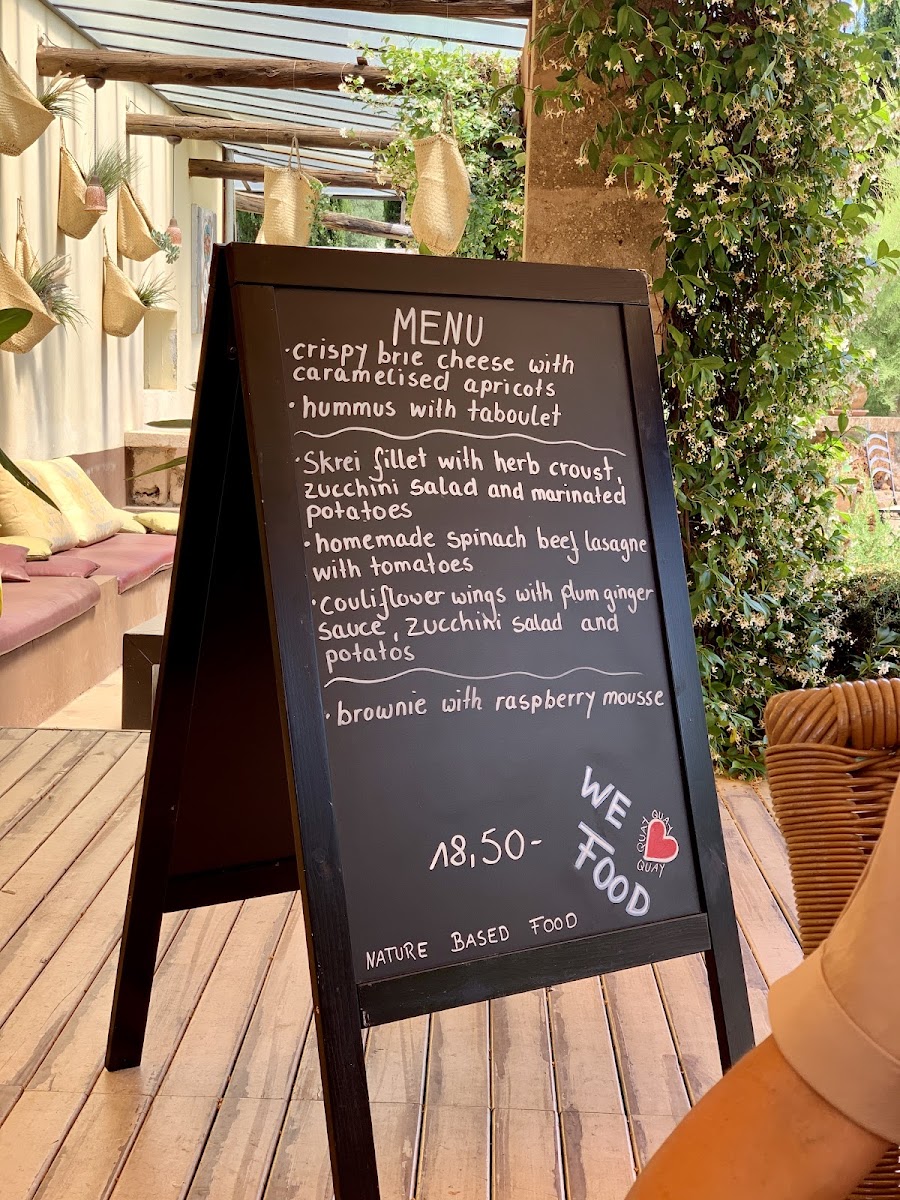 MENU
·crispy brie cheese with
caramelised apricots
·hummus with taboulet
·Skrei fillet with herb croust,
zucchini salad and marinated
potatoes
·homemade spinach beef lasagne
with tomatoes
·couliflower wings with plum ginger
sauce, zucchini salad and
potatos
·brownie with raspberry mousse
18,50-
WE
FOOD
QUAY QUAY
QUAY
NATURE BASED FOOD